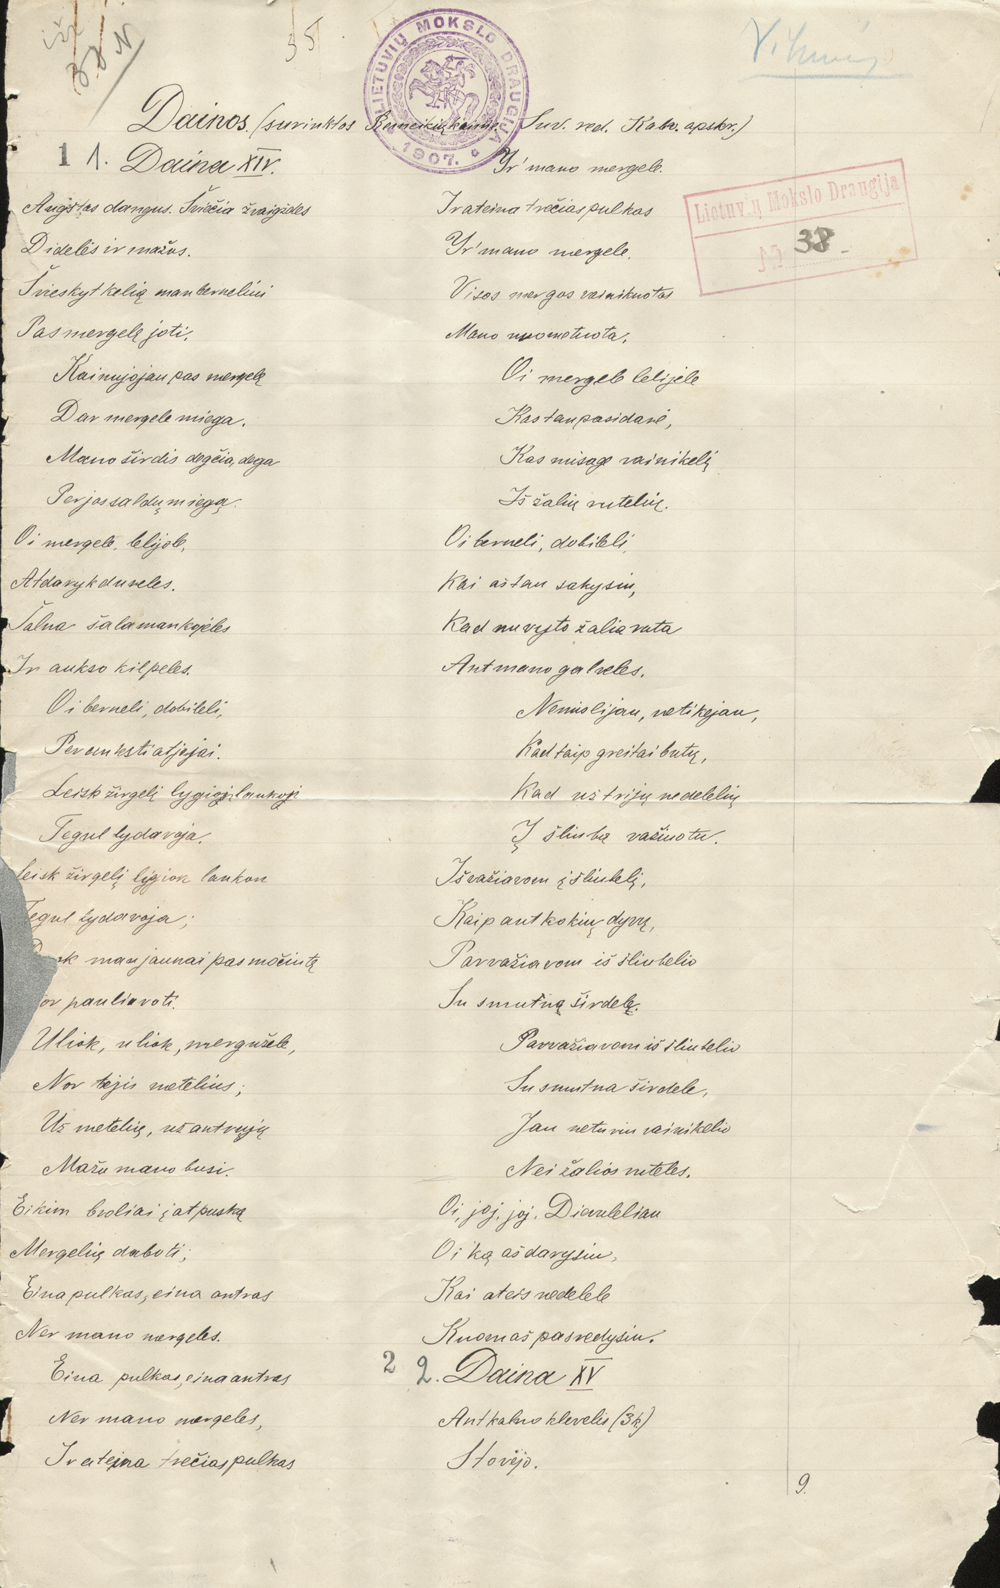 35
LIETUVIŲ MOKSLO DRAUGIJA
1907.
Dainos (surinktos Rumeikių kaime. Suv. red. Kalv. apskr.)
Lietuvių Mokslo Draugija
№ 38
1 1. Daina XIV.
Augštas dangus. Šviečia žvaigždes
Didelės ir mažos.
Švieskyt kelią man berneliui
Pas mergelę joti.
Kai nujojau pas mergelę
Dar mergele miega.
Mano širdis degčia, dega
Per jos saldų miegą.
Oi mergele, lelijole,
Atdaryk dureles.
Šalna šala man kojeles
Ir aukso kilpeles.
Oi berneli, dobileli,
Per anksti atjojai.
Leisk žirgelį lygiojį laukojį
Tegul lydavoja.
Leisk žirgelį lygion laukon
Tegul lydavoja;
man jaunai pas močiutę
pauliavoti.
Uliok, uliok, mergužele,
Nor tėjis metelius;
Už metelių, už antrųjų
Mažu mano busi.
Eikim broliai į atpuską
Mergelių daboti;
Eina pulkas, eina antras
Ner mano mergeles.
Eina pulkas, eina antras
Ner mano mergeles,
Ir ateina trečias pulkas
Yr' mano mergele.
Ir ateina trečias pulkas
Yr' mano mergele.
Visos mergos vainikuotos
Mano nuometuota.
Oi mergele lelijėle
Kas tau pasidarė,
Kas nusagė vainikelį
Iš žalių rutelių.
Oi berneli, dobileli,
Kai aš tau sakysiu,
Kad nuvyto žalia ruta
Ant mano galveles.
Nemislijau, netikėjau,
Kad taip greitai butų,
Kad už trijų nedelėlių
Į šliubą važiuotu.
Išvažiavom į šliubelį,
Kaip ant kokių dyvų,
Parvažiavom iš šliubelio
Su smutną širdelę.
Parvažiavom iš šliubelio
Su smutna širdele,
Jau neturiu vainikelio
Nei žalios ruteles.
Oi, joj, joj, Dievuleliau
Oi ką aš darysiu,
Kai ateis nedelele
Kuom aš pasredysiu.
2 2. Daina XV
Ant kalno klevelis (3k)
Stovėjo.
9.